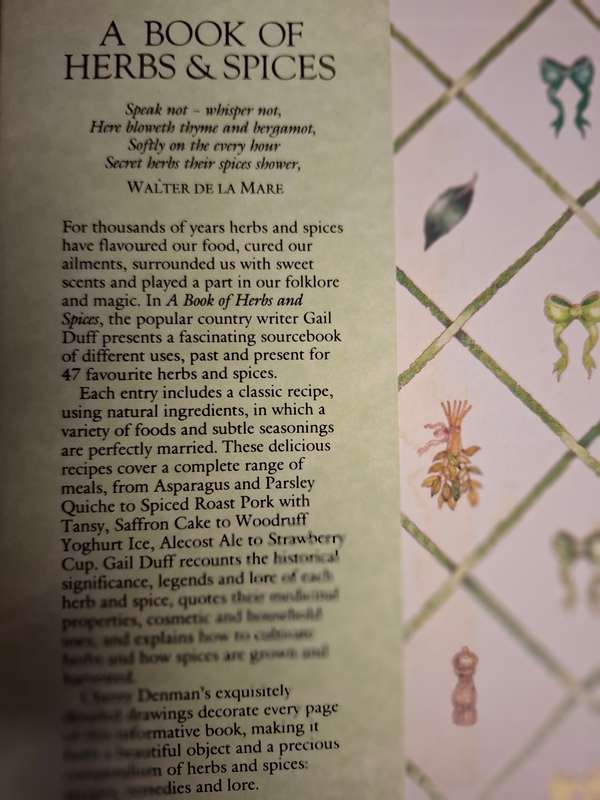 A BOOK OF
HERBS & SPICES
Speak not – whisper not,
Here bloweth thyme and bergamot,
Softly on the every hour
Secret herbs their spices shower,
WALTER DE LA MARE
For thousands of years herbs and spices
have flavoured our food, cured our
ailments, surrounded us with sweet
scents and played a part in our folklore
and magic. In A Book of Herbs and
Spices, the popular country writer Gail
Duff presents a fascinating sourcebook
of different uses, past and present for
47 favourite herbs and spices.
Each entry includes a classic recipe,
using natural ingredients, in which a
variety of foods and subtle seasonings
are perfectly married. These delicious
recipes cover a complete range of
meals, from Asparagus and Parsley
Quiche to Spiced Roast Pork with
Tansy, Saffron Cake to Woodruff
Yoghurt Ice, Alecost Ale to Strawberry
Cup. Gail Duff recounts the historical
significance, legends and lore of each
herb and spice, quotes their medicinal
properties, cosmetic and household
uses, and explains how to cultivate
herbs and how spices are grown and
harvested.
Denman's exquisitely
drawings decorate every page
of this informative book, making it
both a beautiful object and a precious
compendium of herbs and spices:
remedies and lore.